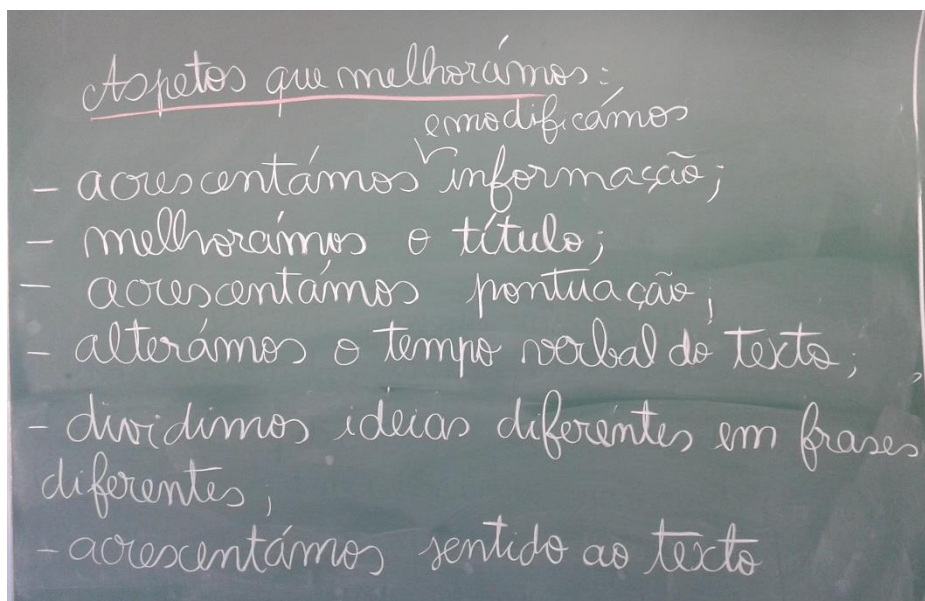 Aspetos que melhorámos:
e modificámos
- acrescentámos informação;
- melhorámos o título;
- acrescentámos pontuação;
- alterámos o tempo verbal do texto;
- dividimos ideias diferentes em frases
diferentes;
- acrescentámos sentido ao texto